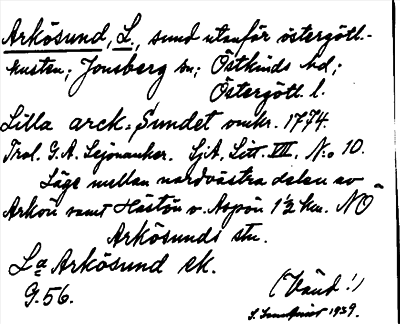 Arkösund, L., sund utanför östergötl.-
kusten; Jonsberg sn; Östkinds hd;
Östergötl. l.
Lilla arck. Sundet omkr. 1774.
Trol. G.A. Lejonanker. SjA, Litt. VII, N:o 10.
Läge mellan nordvästra delen av
Arkön samt Hästön o. Aspön 1½ km. NÖ
Arkösunds stn.
La Arkösund ek.
G. 56.
(Vänd!)
1939.